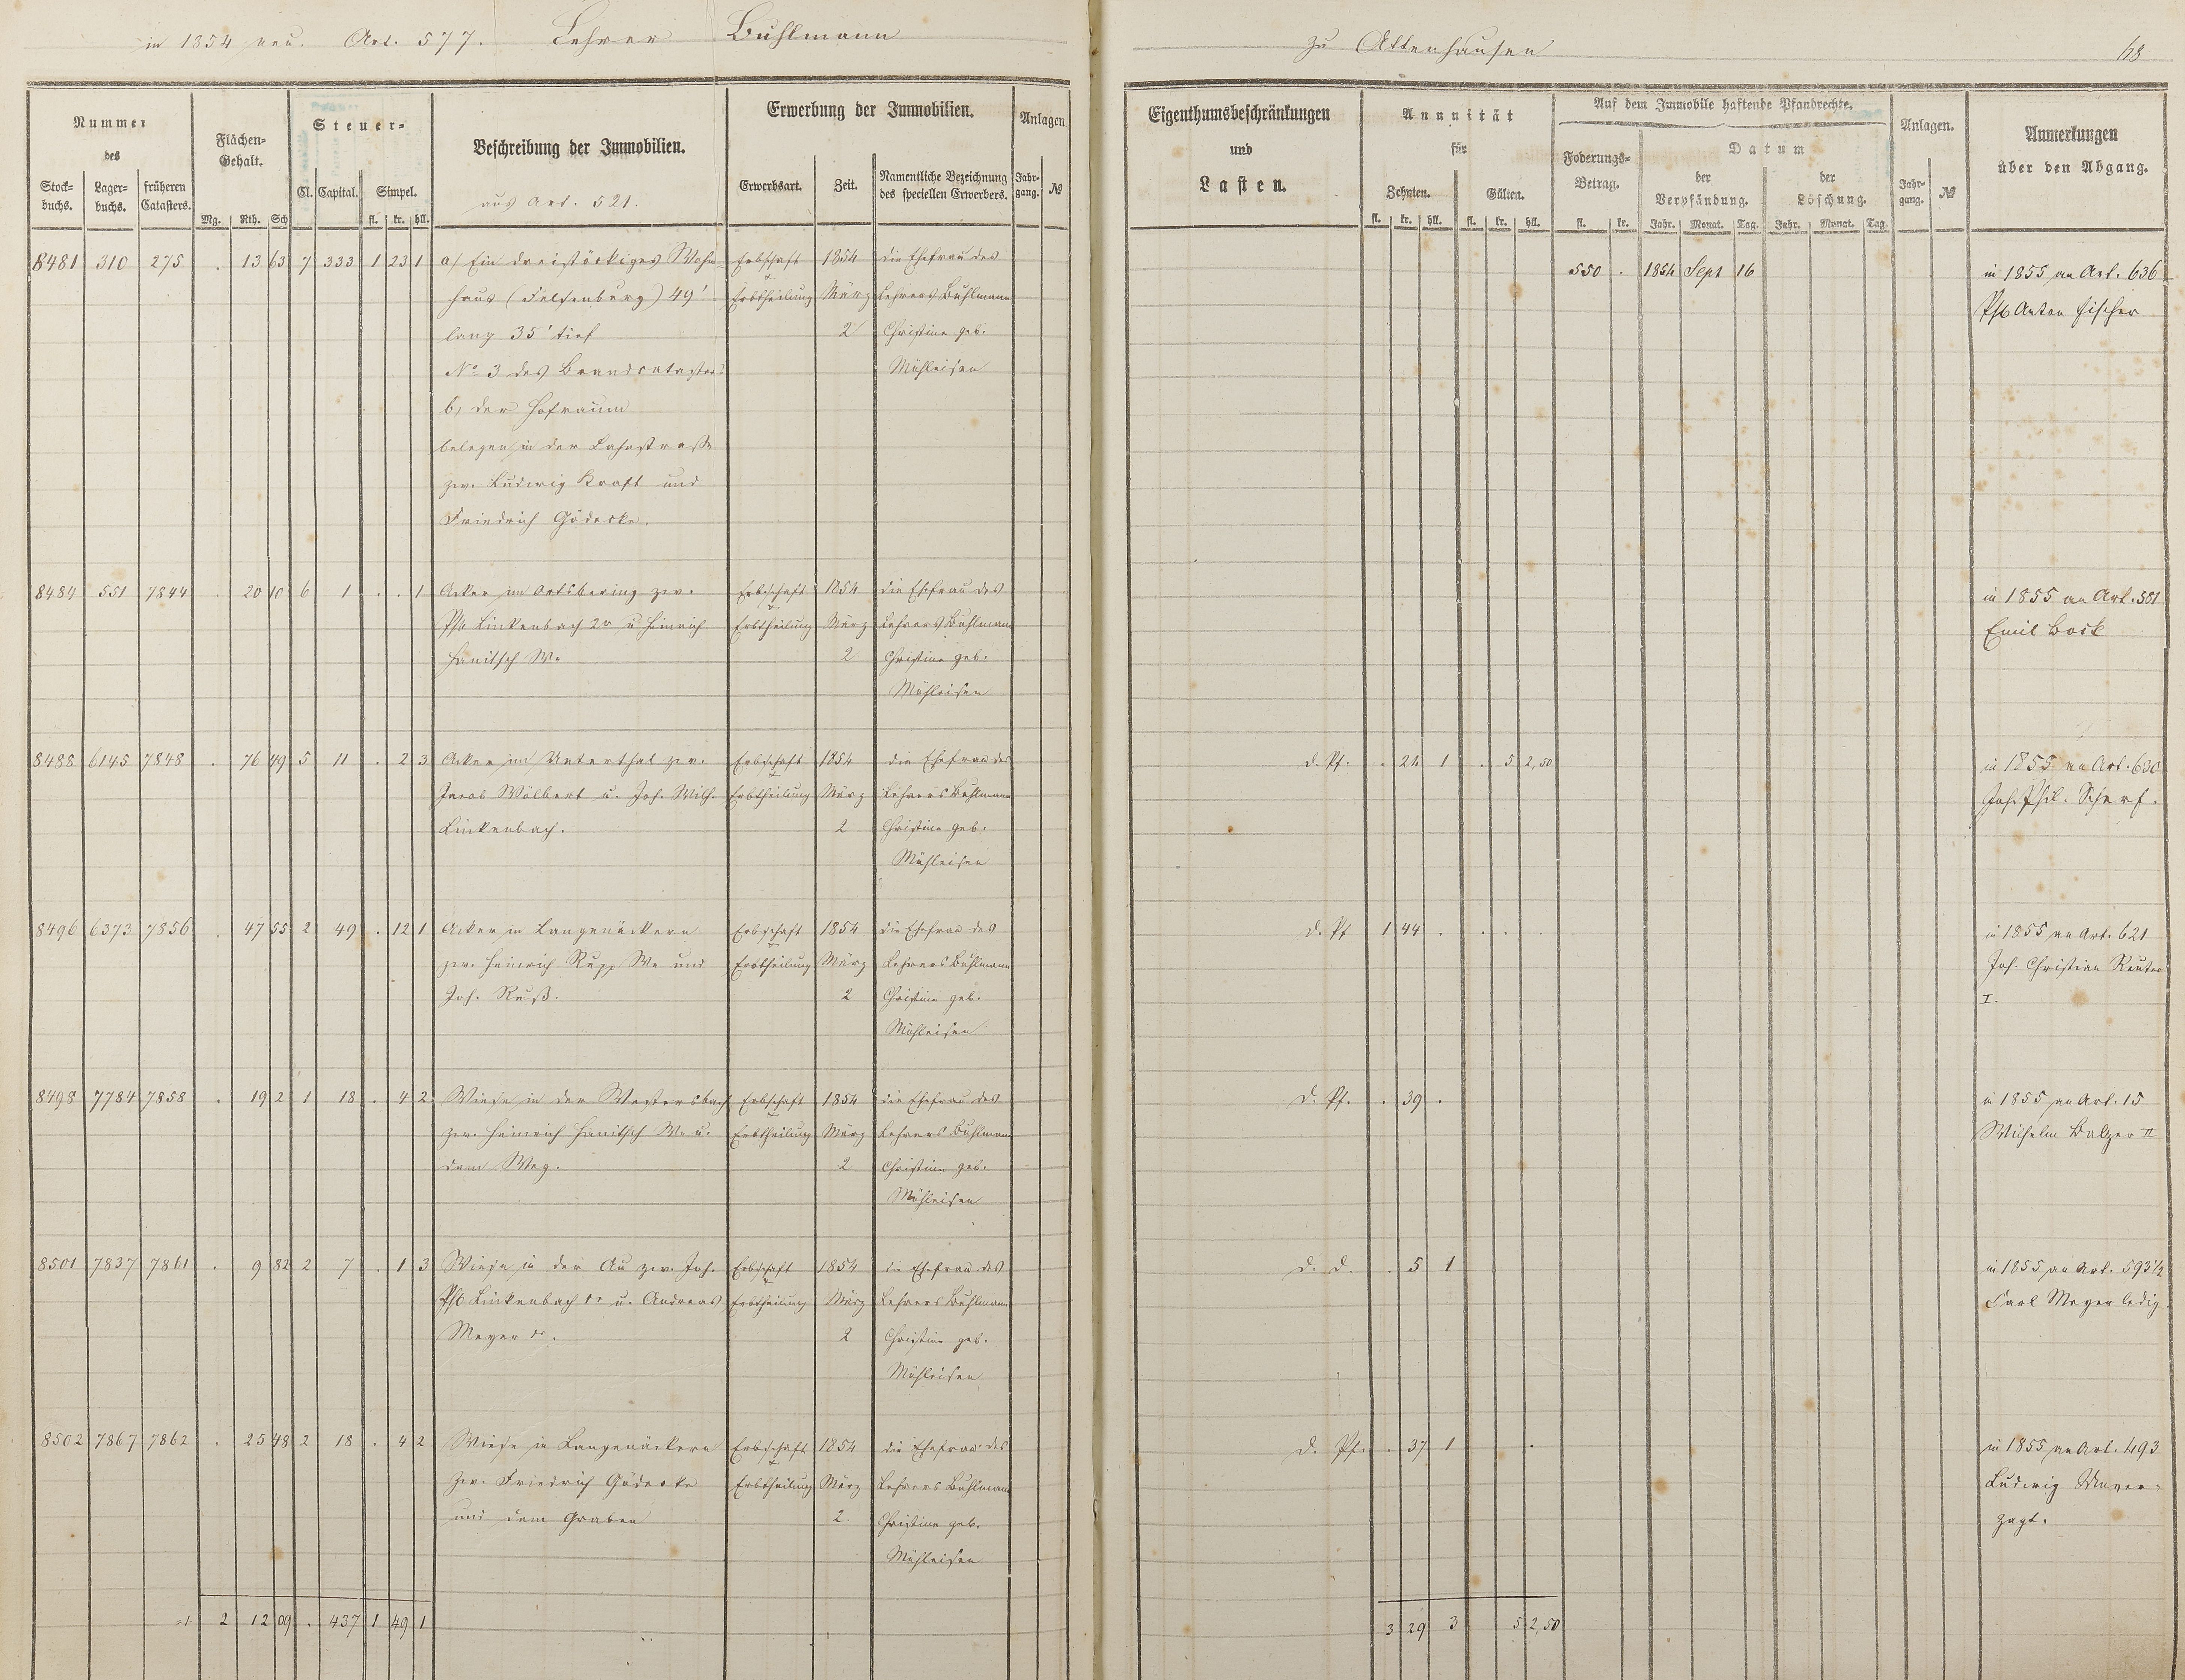 in 1854 neu. Art. 577. Lehrer Buhlmann zu Attenhausen
68
Nummer des
Stockbuchs. Lagerbuchs. früheren Catasters.
Flächen-Gehalt.
Mg. Rth. Sch
Steuer-
Cl. Capital. Simpel.
fl. kr. hll.
Beschreibung der Immobilien.
aus Art. 521.
Erwerbung der Immobilien.
Erwerbsart. Zeit. Namentliche Bezeichnung des speciellen Erwerbers.
Anlagen
Jahrgang. №
Eigenthumsbeschränkungen
und
Lasten.
Annuität
für
Zehnten. Gülten.
fl. kr. hll. fl. kr. hll.
Auf dem Immobile haftende Pfandrechte.
Foderungs-Betrag.
fl. kr.
Datum
der Verpfändung. der Löschung.
Jahr. Monat. Tag. Jahr. Monat. Tag.
Anlagen.
Jahrgang. №
Anmerkungen
über den Abgang.
8481 310 275 . 13 63 7 333 1 23 1 a) Ein dreistöckiges Wohn- Erbschaft 1854 die Ehefrau des 550 . 1854 Sept 16 in 1855 an Art. 636
haus (Felsenburg) 49' Erbtheilung März Lehrers Buhlmann Phb Anton Fischer
lang 35' tief 2 Christine geb.
No 3 des Brandcatasters Mühleisen
b, der Hofraum
belegen in der Lahnstraße
zw. Ludwig Kraft und
Friedrich Gödecke.
8484 551 7844 . 20 10 6 1 . . 1 Acker im Ortsbering zw. Erbschaft 1854 die Ehefrau des in 1855 an Art. 581
Phb Linkenbach 2r u. Heinrich Erbtheilung März Lehrers Buhlmann Emil Bock
Hanitsch We 2 Christine geb.
Mühleisen
8488 6145 7848 . 76 49 5 11 . 2 3 Acker im Unterthal zw. Erbschaft 1854 die Ehefrau des d. Pf. . 24 1 . 5 2,50 in 1855 an Art. 630
Jacob Wölbert u. Joh. Wilh. Erbtheilung März Lehrers Buhlmann Joh. Phil. Scherf.
Linkenbach. 2 Christine geb.
Mühleisen
8496 6373 7856 . 47 55 2 49 . 12 1 Acker in Langenäckern Erbschaft 1854 die Ehefrau des d. Pf 1 44 . . . . in 1855 an Art. 621
zw. Heinrich Rupp We und Erbtheilung März Lehrers Buhlmann Joh. Christian Reuter
Joh. Ruß. 2 Christine geb. I.
Mühleisen
8498 7784 7858 . 19 2 1 18 . 4 2 Wiese in der Westersbach Erbschaft 1854 die Ehefrau des d. Pf. . 39 . in 1855 an Art. 15
zw. Heinrich Hanitsch We u. Erbtheilung März Lehrers Buhlmann Wilhelm Balzer II
dem Weg. 2 Christine geb.
Mühleisen
8501 7837 7861 . 9 82 2 7 . 1 3 Wiese in der Au zw. Joh. Erbschaft 1854 die Ehefrau des d. d. . 5 1 in 1855 an Art. 593½
Phb Linkenbach 1r u. Andreas Erbtheilung März Lehrers Buhlmann Carl Meyer ledig.
Meyer 2 Christine geb.
Mühleisen
8502 7867 7862 . 25 48 2 18 . 4 2 Wiese in Langenäckern Erbschaft 1854 die Ehefrau des d. Pf. . 37 1 . in 1855 an Art. 493
zw. Friedrich Gödecke Erbtheilung März Lehrers Buhlmann Ludwig
und dem Graben 2. Christine geb.
Mühleisen
2 12 09 . 437 1 49 1 3 29 3 5 2,50